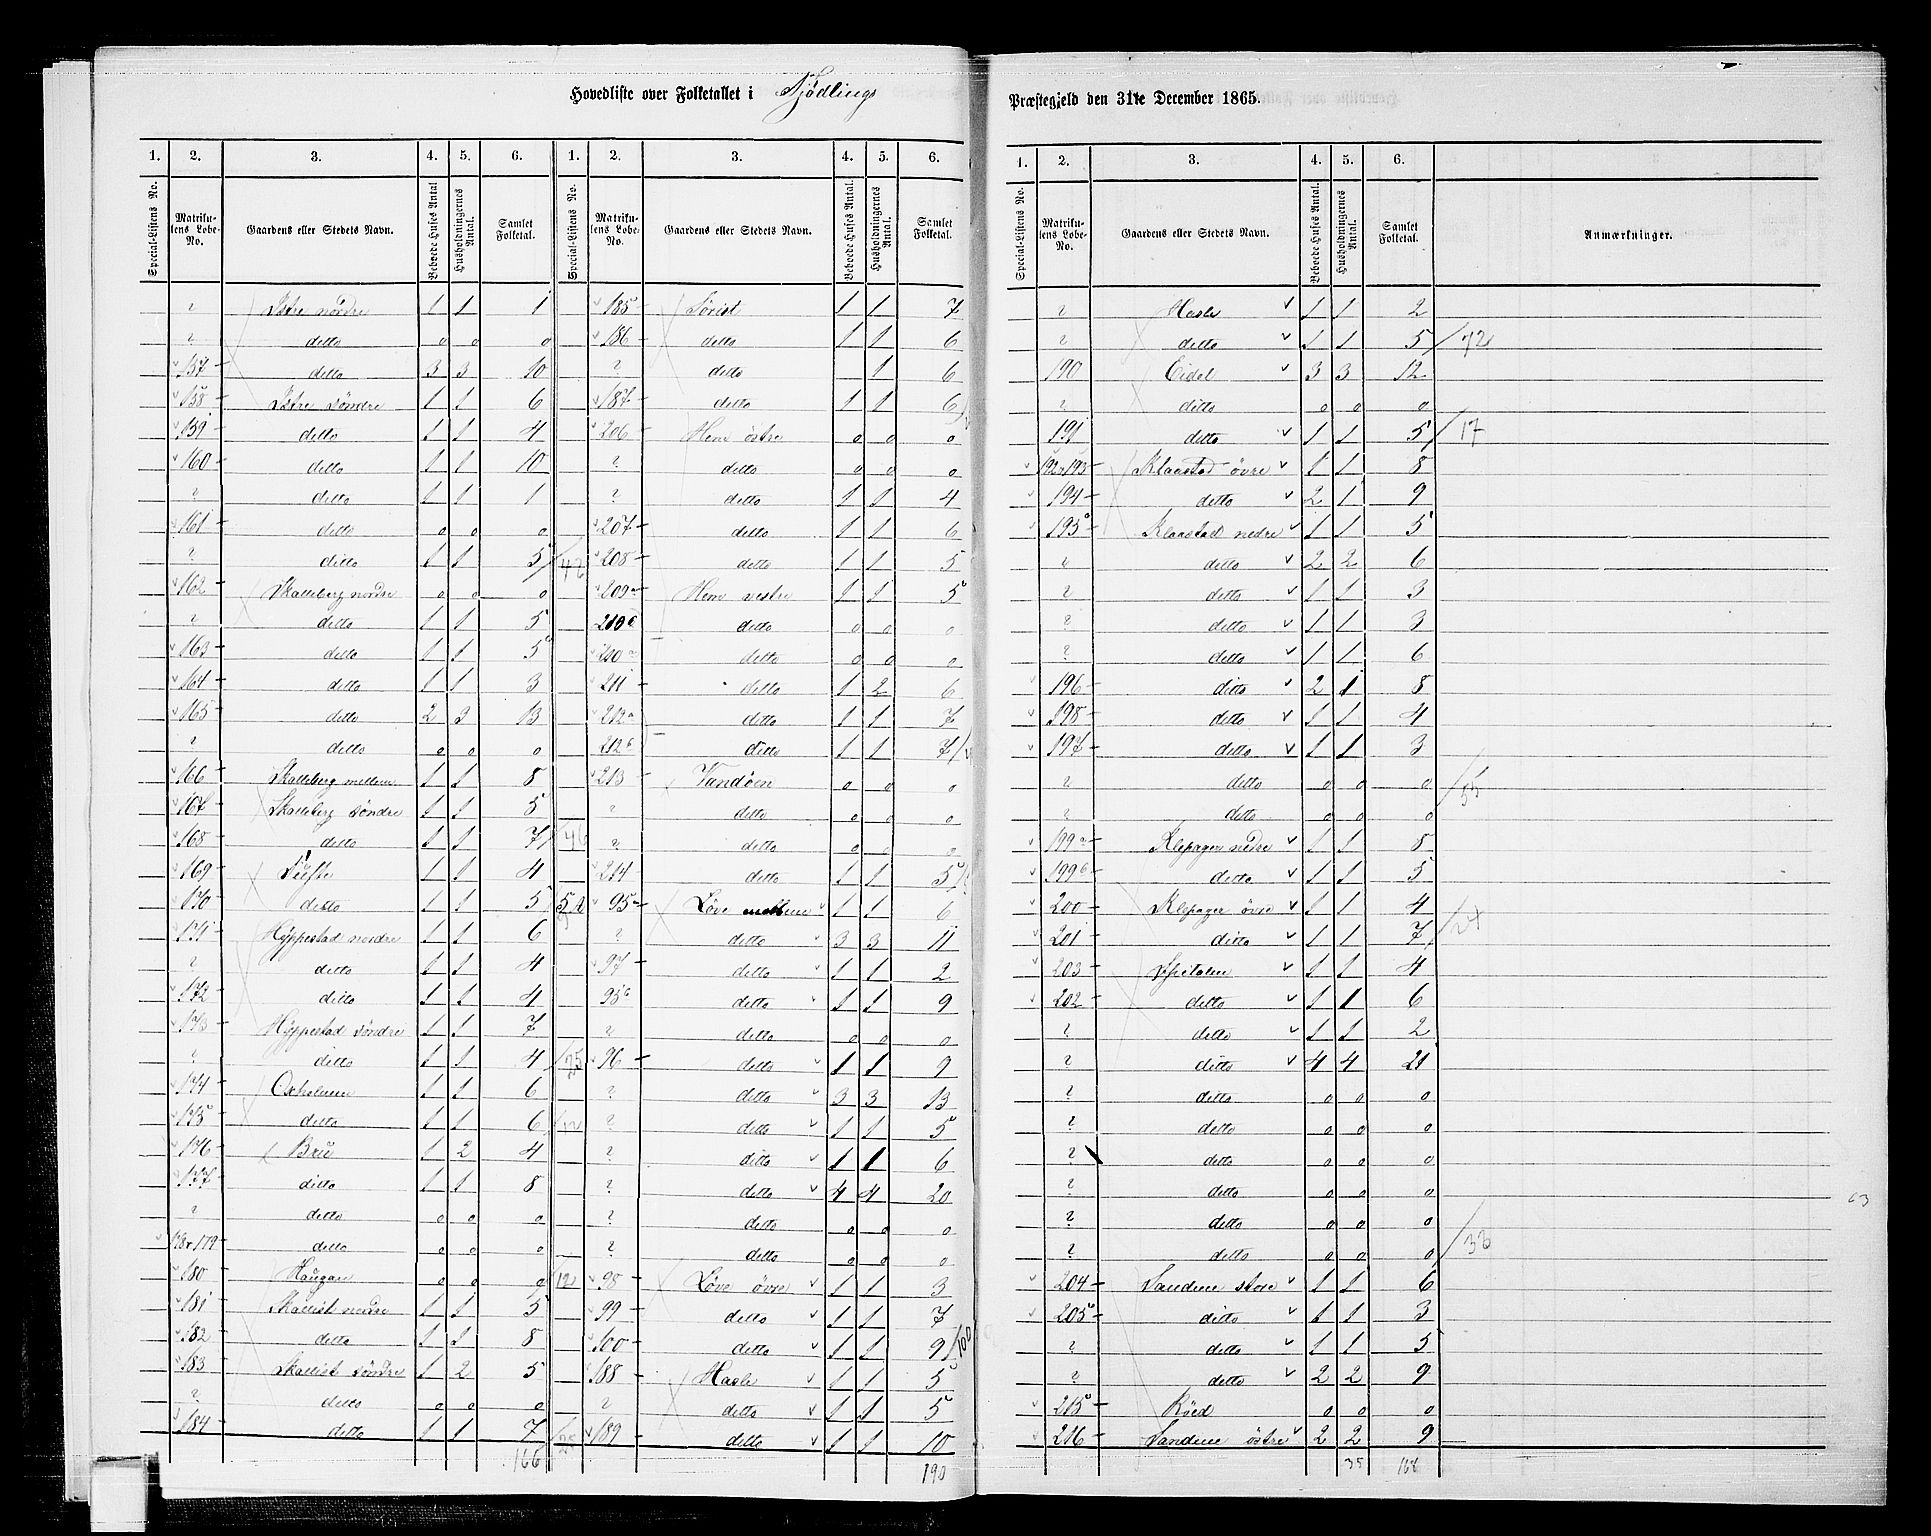 Hovedliste over Folketallet i Tjødlings
Præstegjeld den 31te December 1865.
1. 2. 3. 4. 5. 6. 1. 2. 3. 4. 5. 6.
Special-Listens No. Matrikulens Løbe-No. Gaardens eller Stedets Navn. Beboede Huses Antal. Husholdningernes Antal. Samlet Folketal. Special-Listens No. Matrikulens Løbe-No. Gaardens eller Stedets Navn. Beboede Huses Antal. Husholdningernes Antal. Samlet Folketal.
? Istre nordre 1 1 1 185 Sørist 1 1 7
? ditto 0 0 0 186 ditto 1 1 6
157 ditto 3 3 10 ? ditto 1 6
158 Istre søndre 1 1 6 187 ditto 1 1 6
159 ditto 1 1 4 206 Hem østre 0 0 0
160 ditto 1 1 10 ? ditto 0 0 0
? ditto 1 1 1 ? ditto 1 1 4
161 ditto 0 0 0 207 ditto 1 1 6
? ditto 1 1 5 /42 208 ditto 1 1 5
162 Skalleberg nordre 0 0 0 209 Hem vestre 1 1 5
? ditto 1 1 5 210 ditto 0 0 0
163 ditto 1 1 5 210 ditto 0 0 0
164 ditto 1 1 3 211 ditto 1 2 6
165 ditto 2 3 13 212a ditto 1 1 7
? ditto 0 0 0 212b ditto 1 1 7
166 Skalleberg mellem 1 1 8 213 Vandøen 0 0 0
167 Skalleberg søndre 1 1 5 ? ditto 0 0 0
168 ditto 1 1 7 /46 ? ditto 0 0 0
169 Tufte 1 1 4 214 ditto 1 1 5
170 ditto 1 1 5 95a Løve mellem 1 1 6
171 Hyppestad nordre 1 1 6 ? ditto 3 3 11
? ditto 1 1 4 97 ditto 1 1 2
172 ditto 1 1 4 95b ditto 1 1 9
173 Hyppestad søndre 1 1 7 ? ditto 0 0 0
? ditto 1 1 4 /25 96 ditto 1 1 9
174 Oxholmen 1 1 6 ? ditto 3 3 13
175 ditto 1 1 6 /12 ? ditto 1 1 5
176 Bru 1 2 4 ? ditto 1 1 6
177 ditto 1 1 8 ? ditto 4 4 20
? ditto 0 0 0 ? ditto 0 0 0
178 & 179 ditto 0 0 0 ? ditto 0 0 0
180 Haugan 0 0 0 /12 98 Løve øvre 1 1 3
181 Skallist nedre 1 1 5 99 ditto 1 1 7
182 ditto 1 1 8 100 ditto 1 1 9 /100
183 Skallist søndre 1 2 5 188 Hasle 1 1 5
? ditto 0 0 0 ? ditto 1 1 5
184 ditto 1 1 7 /25 189 ditto 1 1 10
166 190
1. 2. 3. 4. 5. 6.
Special-Listens No. Matrikulens Løbe-No. Gaardens eller Stedets Navn. Beboede Huses Antal. Husholdningernes Antal. Samlet Folketal. Anmærkninger.
? Hasle 1 1 2
? ditto 1 1 5 /72
190 Eidet 3 3 12
? ditto 0 0 0
191 ditto 1 1 5 /17
192 & 193 Klaastad øvre 1 1 8
194 ditto 2 1 9
195 Klaastad nedre 1 1 5
" ditto 2 2 6
? ditto 1 1 3
? ditto 1 1 3
? ditto 1 1 6
196 ditto 2 1 8
198 ditto 1 1 4
197 ditto 1 1 3
? ditto 0 0 0 /55
? ditto 0 0 0
199a Klepager nedre 1 1 8
199b ditto 1 1 5
200 Klepager øvre 1 1 4
201 ditto 1 1 7 /24
203 Spitalen 1 1 4
202 ditto 1 1 6
? ditto 1 1 2
? ditto 4 4 21
? ditto 0 0 0
? ditto 0 0 0
? ditto 0 0 0
? ditto 0 0 0
? ditto 0 0 0
? ditto 0 0 0 /33
204 Sandene store 1 1 6
205 ditto 1 1 3
? ditto 1 1 5
? ditto 2 2 9
215 Røed 0 0 0
216 Sandene østre 2 2 9
35 168